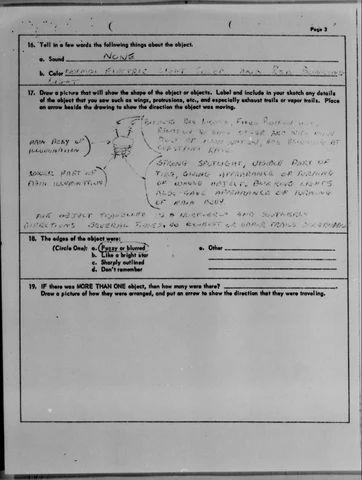 Page 3
16. Tell in a few words the following things about the object.
a. Sound NONE
b. Color NORMAL ELECTRIC LIGHT COLOR AND RED BLINKING
LIGHT
17. Draw a picture that will show the shape of the object or objects. Label and include in your sketch any details
of the object that you saw such as wings, protrusions, etc., and especially exhaust trails or vapor trails. Place
an arrow beside the drawing to show the direction the object was moving.
BLINKING RED LIGHTS, FIXED POSITION WITH
AND BLINKING AT
CONSTANT RATE.
MAIN BODY OF
ILLUMINATION
STRONG SPOTLIGHT, VISIBLE PART OF
TIME, GIVING APPEARANCE OF TURNING
OF WHOLE OBJECT. BLINKING LIGHTS
ALSO GAVE APPEARANCE OF TURNING
OF MAIN BODY
LOWER PART OF
MAIN ILLUMINATION
THE OBJECT TRAVELLED IN A NORTHERLY AND SOUTHERLY
DIRECTIONS SEVERAL TIMES. NO EXHAUST OR VAPOR TRAILS DISCERNABLE
18. The edges of the object were:
(Circle One): a. Fuzzy or blurred
b. Like a bright star
c. Sharply outlined
d. Don't remember
e. Other
19. IF there was MORE THAN ONE object, then how many were there?
Draw a picture of how they were arranged, and put an arrow to show the direction that they were traveling.